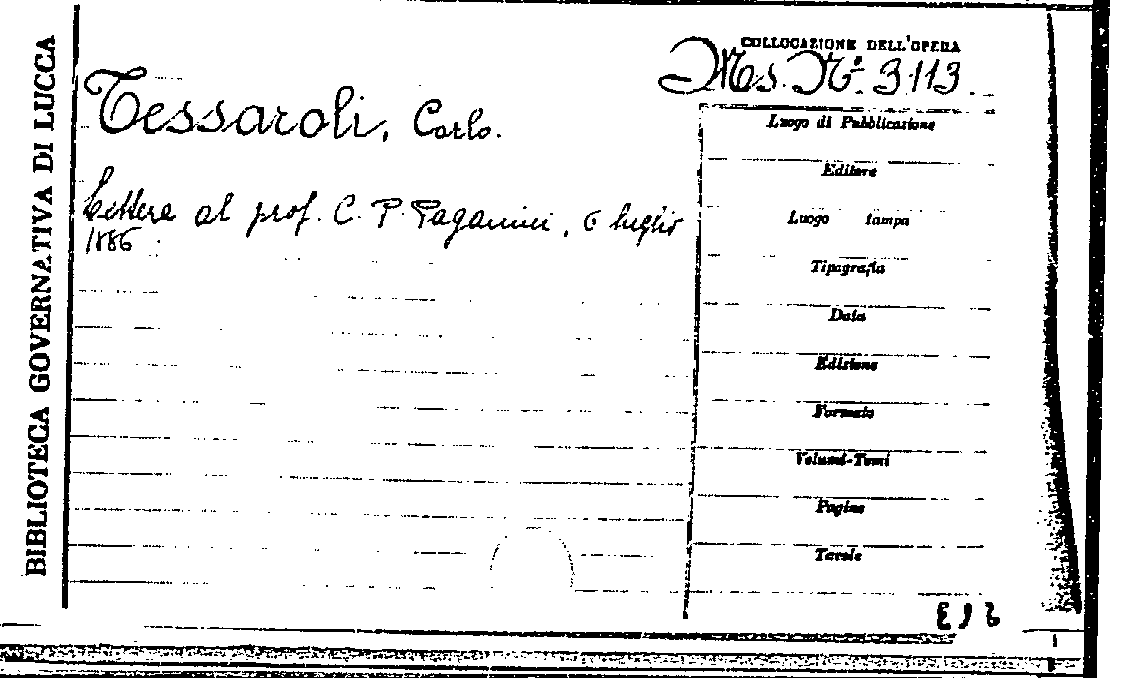 BIBLIOTECA GOVERNATIVA DI LUCCA
COLLOCAZIONE DELL'OPERA
Ms. N.° 3113
Tessaroli, Carlo.
Lettera al prof. C. P. Paganini, 6 luglio
1886
Luogo di Pubblicazione
Editore
Luogo tampa
Tipografia
Data
Edizione
Formato
Volumi-Tomi
Pagine
Tavole